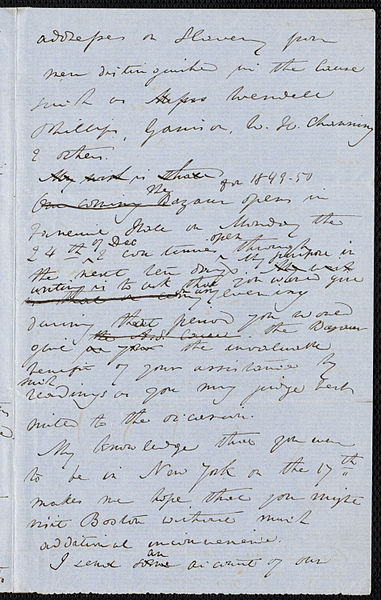 addresses on Slavery from
men distinguished in the cause
such as Wendell
Phillips, Garrison, W. H. Channing
& others.
is that
Our coming The Bazaar for 1849-50 opens in
Faneuil Hall on Monday the
24th of Dec & continues open through
the next ten days. My purpose in
writing is to ask that you would give
on any evening
during that period you would
give the Bazaar
the invaluable
benefit of your assistance by
such readings as you may judge best
suited to the occasion.
My knowledge that you were
to be in New York on the 17th
makes me hope that you might
visit Boston without much
additional inconvenience.
I send an some account of our